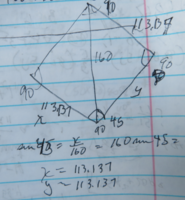 90
113.137
160
90
90
y
x 113.137
90 45
sin 45 = x/160 = 160 sin 45 =
x = 113.137
y = 113.137